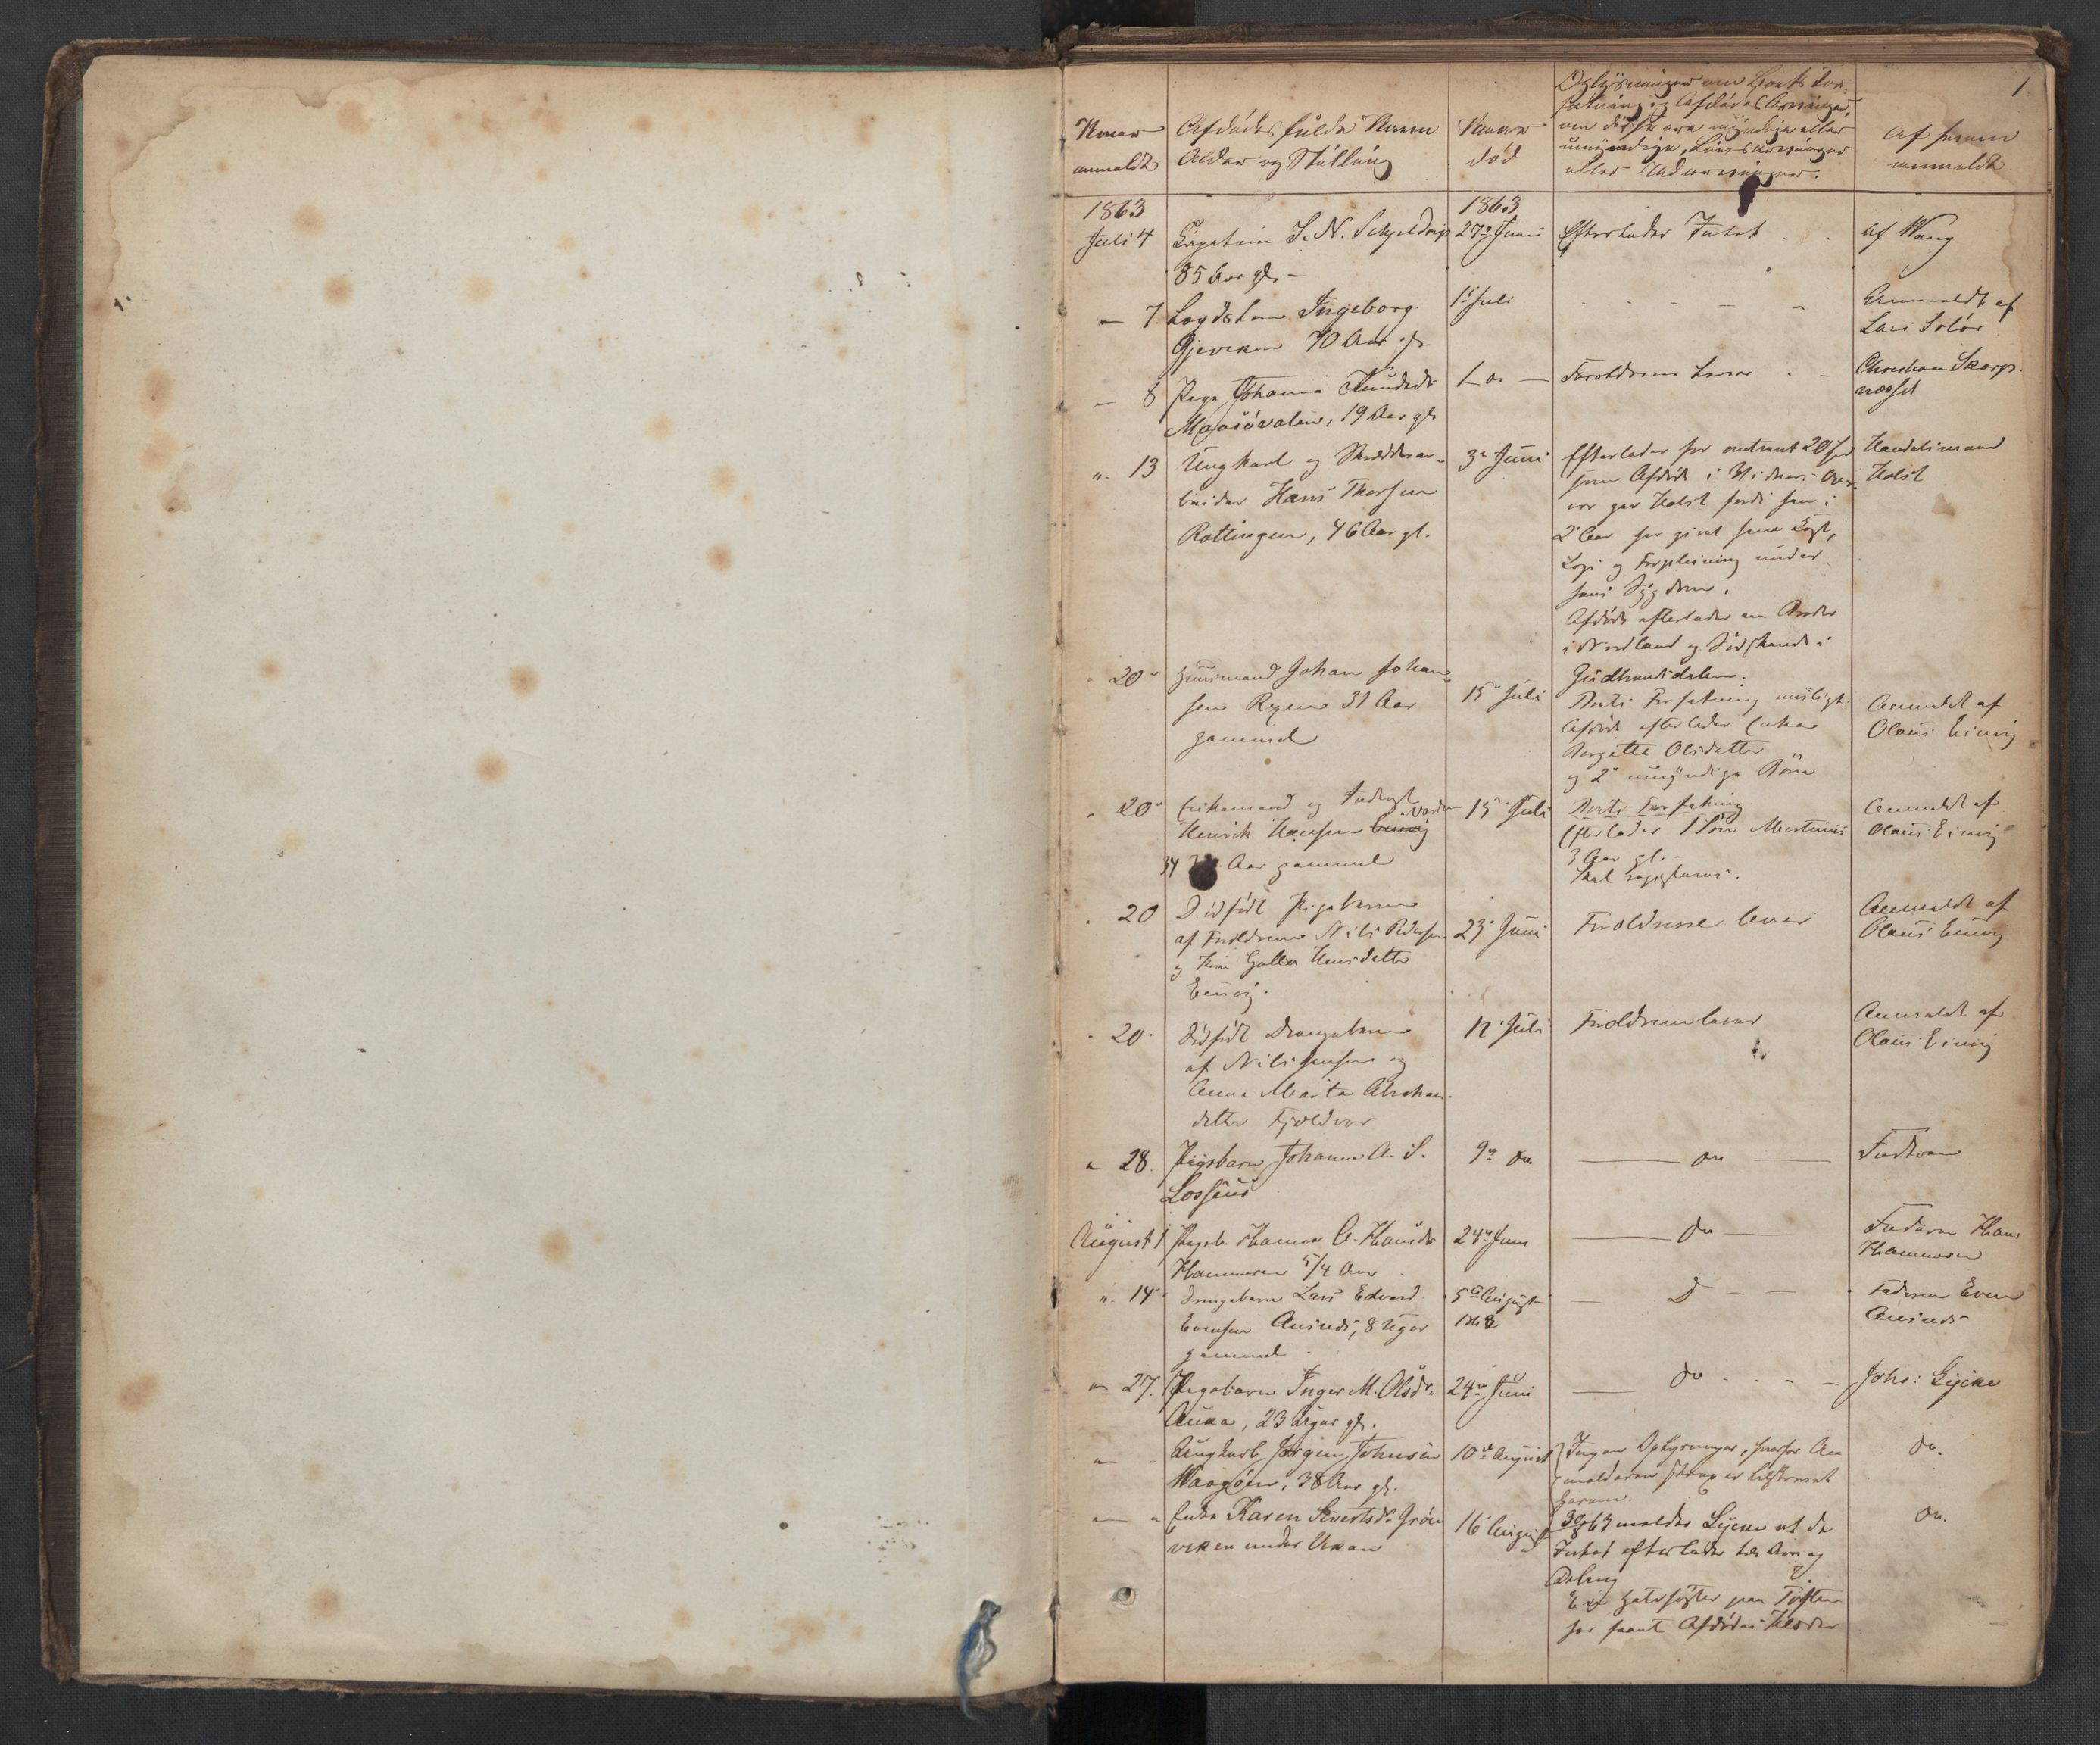 1
Naar
anmeldt
Afdødes fulde Navn
Alder og Stilling
Naar
død
Oplysninger om Boets For-
fatning og Afdødes Arvinger,
om disse ere myndige eller
umyndige, Livsarvinger
eller Udarvinger.
Af hvem
anmeldt
1863
Juli 4
S. N. Schjeldrup
85 Aar gl.
1863
27de Juni
Efterlader Intet
af Wang
— 7
Ingeborg
Gjeviken 70 Aar gl.
1 Juli
Anmeldt af
Lars Solør
— 8
Pige Johanna Knudsdr
Maasøvalen, 19 Aar gl.
1 do —
Forældrene lever
Christian Skarps-
næsset
" 13
Ungkarl og Skrædderar-
beider Hans Thorsen
Rottingen, 46 Aar gl.
3 Juni
Efterlader sig omtrent 20
som Afdøde i
gav Holst fordi han i
2 Aar har givet ham Kost,
Logi og Forpleining under
hans Sygdom.
Afdøde efterlader en Broder
i Nordland og Sødskende i
Gudbrandsdalen.
Handelsmand
Holst
20
Huusmand Johan Johan-
sen Ryen 31 Aar
gammel
15 Juli
Boets Forfatning usligt.
Afdøde efterlader Enke
Bergitte Olsdatter
og 2 umyndige Børn
Anmeldt af
Olaus Einvig
20
Enkemand og Inderst
Henrik Hansen
34 Aar gammel
15 Juli
Boets Forfatning
Efterlader 1 Søn Martinus
3 Aar gl.
Skal registreres.
Anmeldt af
Olaus Einvig
20
Dødfødt Pigebarn
af Forældrene Nils Pedersen
og Kone Hansdatter
Einvig.
23 Juni
Forældrene lever
Anmeldt af
Olaus Einvig
20
Dødfødt Drengebarn
af Nils Jensen og
Anna Marta Abraham-
datter Fjeldvær
12 Juli
Forældrene lever
Anmeldt af
Olaus Einvig
" 28.
Pigebarn Johanna A. S.
Lossius
9de do
— do —
Faderen
August 1
Pigeb. Hanna A. Hansdr
Hammeren 5/4 Aar
24de Juni
— do —
Faderen Hans
Hammeren
" 14
Drengebarn Lars Edvard
Evensen Ausneds, 8 Uger
gammel
5te August
1863
— D —
Faderen Even
Ausneds
" 27.
Pigebarn Inger M. Olsdr.
Auka, 23 Uger gl.
24de Juni
— do —
Johs: Lycke
Ungkarl Jørgen Johnsen
Waagøen, 38 Aar gl.
10de August
Ingen Oplysninger, hvorfor An-
melderen strax er tilskrevet
herom.
do.
Enke Karen Sivertsdr Grøn-
viken under Ukan
16 August
30/8 63 melder Lycke at de
Intet efterlader
do.